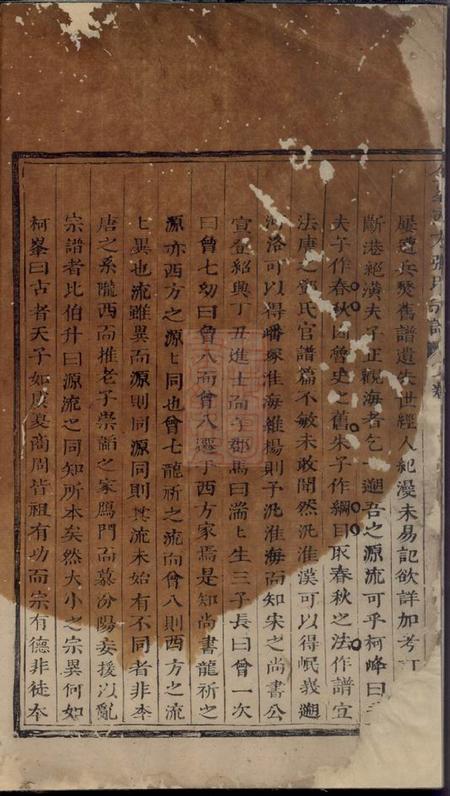 屢遭兵燹舊譜遺失世經人紀漫未易記欲詳加考
斷港絕潢夫子正觀海者乞遡吾之源流可乎柯峰曰
夫子作春秋因魯史之舊朱子作綱目取春秋之法作譜宜
法唐之鄧氏官譜篇不敏未敢聞然汎淮漢可以得岷嶓遡
河洛可以得嶓冡淮海維揚則予汎淮海而知宋之尚書公
宣登紹興丁丑進士而午郡馬曰湍湍生三子長曰曾一次
曰曾七幼曰曾八而曾八遷于西方家焉是知尚書龍祈之
源亦西方之源匕同也曾七龍祈之流而曾八則西方之流
匕異也流雖異而源則同源同則其流未始有不同者非李
唐之系隴西而推老子崇韜之家鴈門而慕汾陽妄援以亂
宗譜者比伯升曰源流之同知所本矣然大小之宗異何如
柯峯曰古者天子如虞夏商周皆祖有功而宗有德非徒本